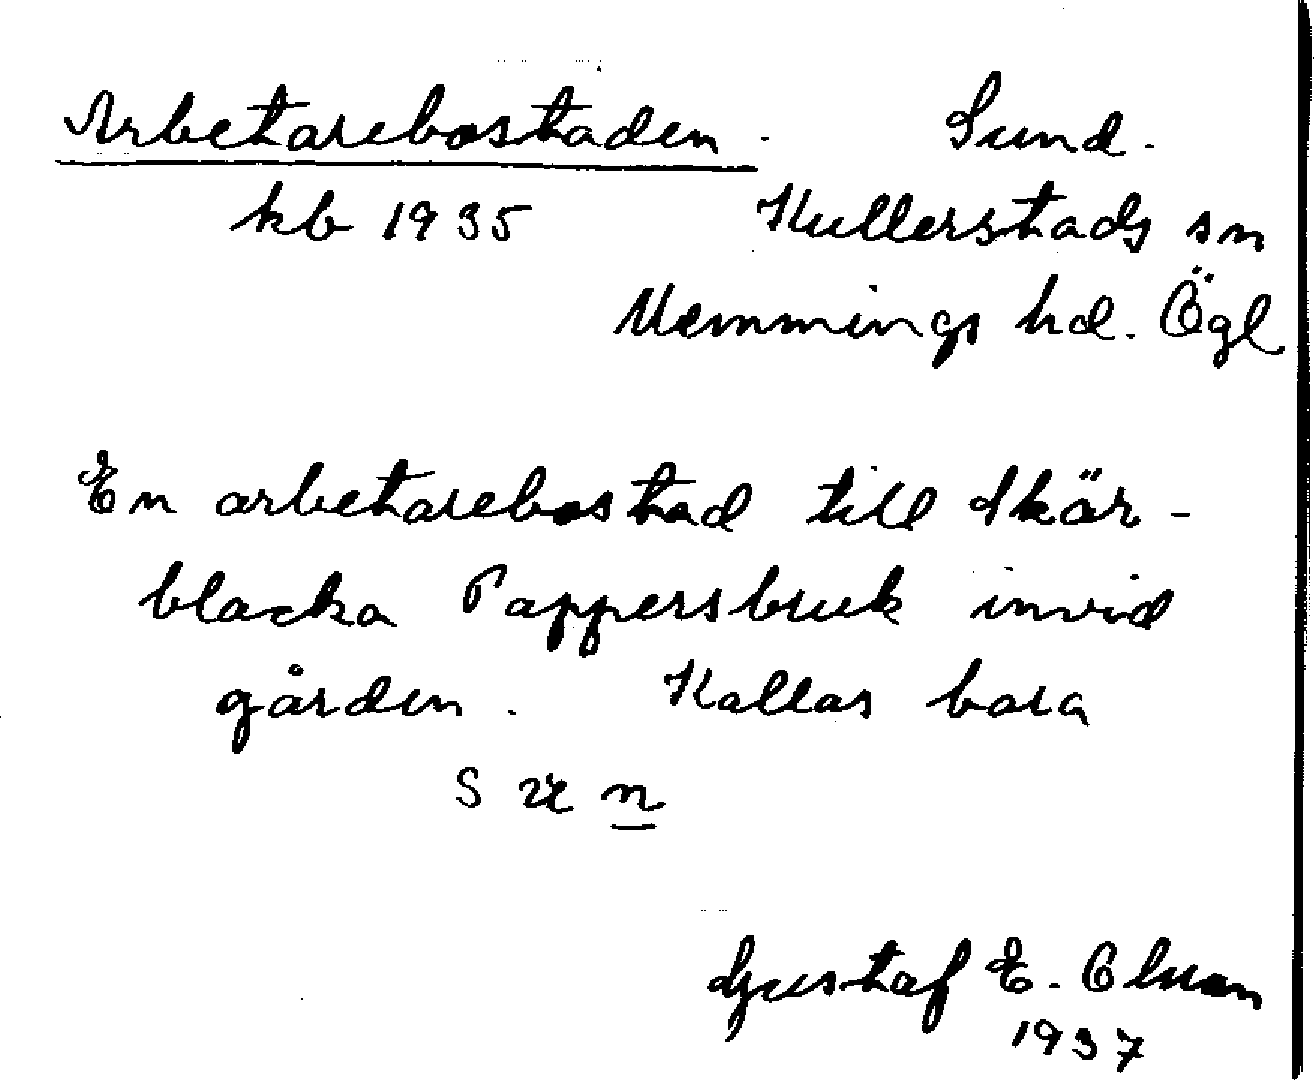 Arbetarebostaden. Sund.
kb 1935 Kullerstads sn
Memmings hd. Ögl
En arbetarebostad till Skär-
blacka Pappersbruk invid
gården. Kallas bara
Gustaf E.
1937